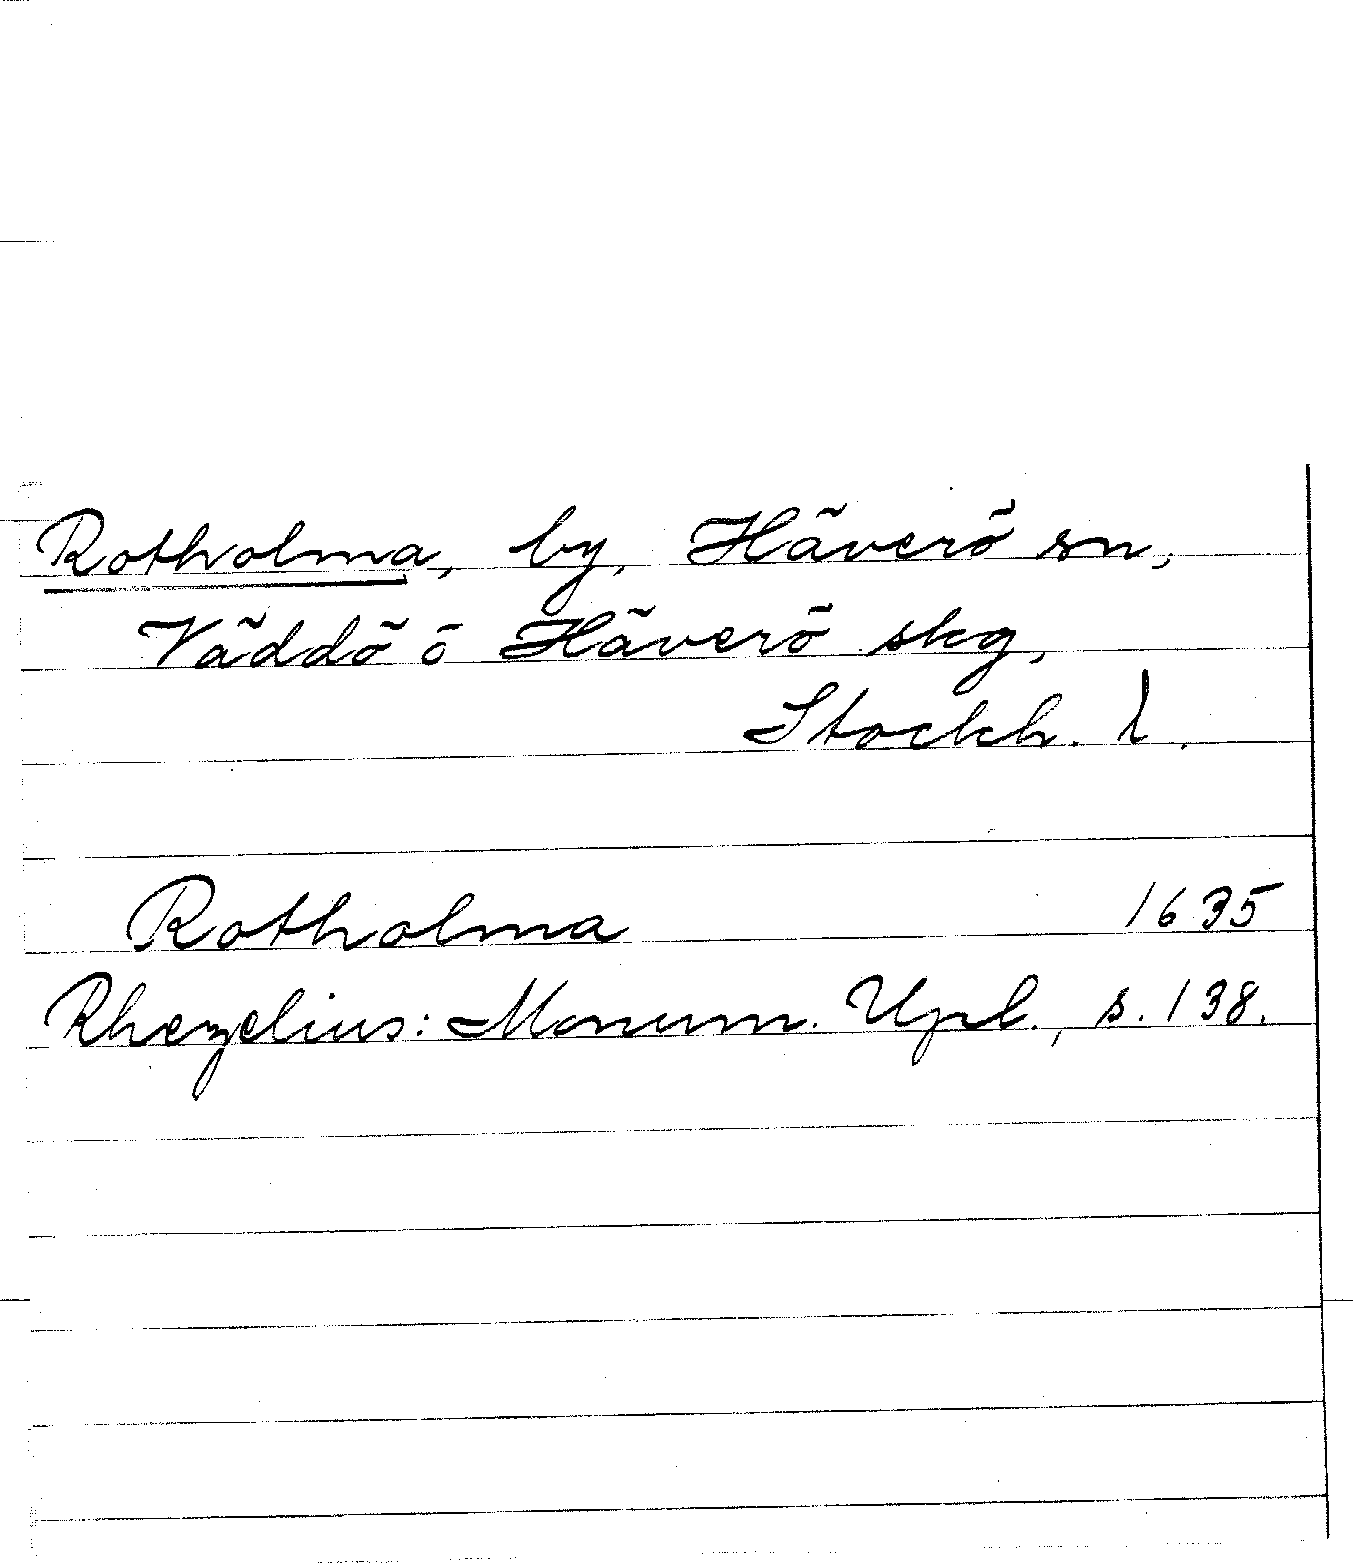 Rotholma, by, Häverö sn,
Väddö o Häverö skg,
Stockh. l.
Rotholma 1635
Rhezelius: Monum. Upl., s. 138.